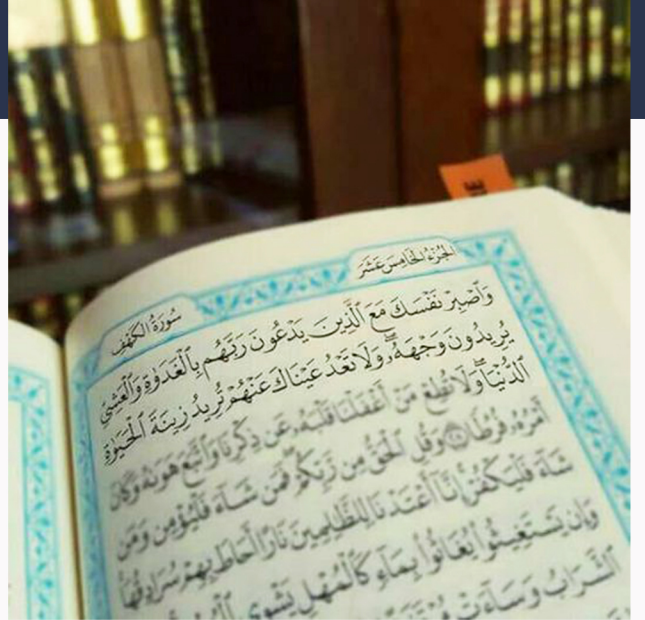 الجُزْءُ الخَامِسَ عَشَرَ
سُورَةُ الكَهْفِ
وَٱصۡبِرۡ نَفۡسَكَ مَعَ ٱلَّذِينَ يَدۡعُونَ رَبَّهُم بِٱلۡغَدَوٰةِ وَٱلۡعَشِيِّ
يُرِيدُونَ وَجۡهَهُۥۖ وَلَا تَعۡدُ عَيۡنَاكَ عَنۡهُمۡ تُرِيدُ زِينَةَ ٱلۡحَيَوٰةِ
ٱلدُّنۡيَاۖ وَلَا تُطِعۡ مَنۡ أَغۡفَلۡنَا قَلۡبَهُۥ عَن ذِكۡرِنَا وَٱتَّبَعَ هَوَىٰهُ وَكَانَ
أَمۡرُهُۥ فُرُطٗا ٢٨ وَقُلِ ٱلۡحَقُّ مِن رَّبِّكُمۡۖ فَمَن شَآءَ فَلۡيُؤۡمِن وَمَن
شَآءَ فَلۡيَكۡفُرۡۚ إِنَّآ أَعۡتَدۡنَا لِلظَّٰلِمِينَ نَارًا أَحَاطَ بِهِمۡ سُرَادِقُهَاۚ
وَإِن يَسۡتَغِيثُواْ يُغَاثُواْ بِمَآءٖ كَٱلۡمُهۡلِ يَشۡوِي
ٱلشَّرَابُ وَسَآءَتۡ